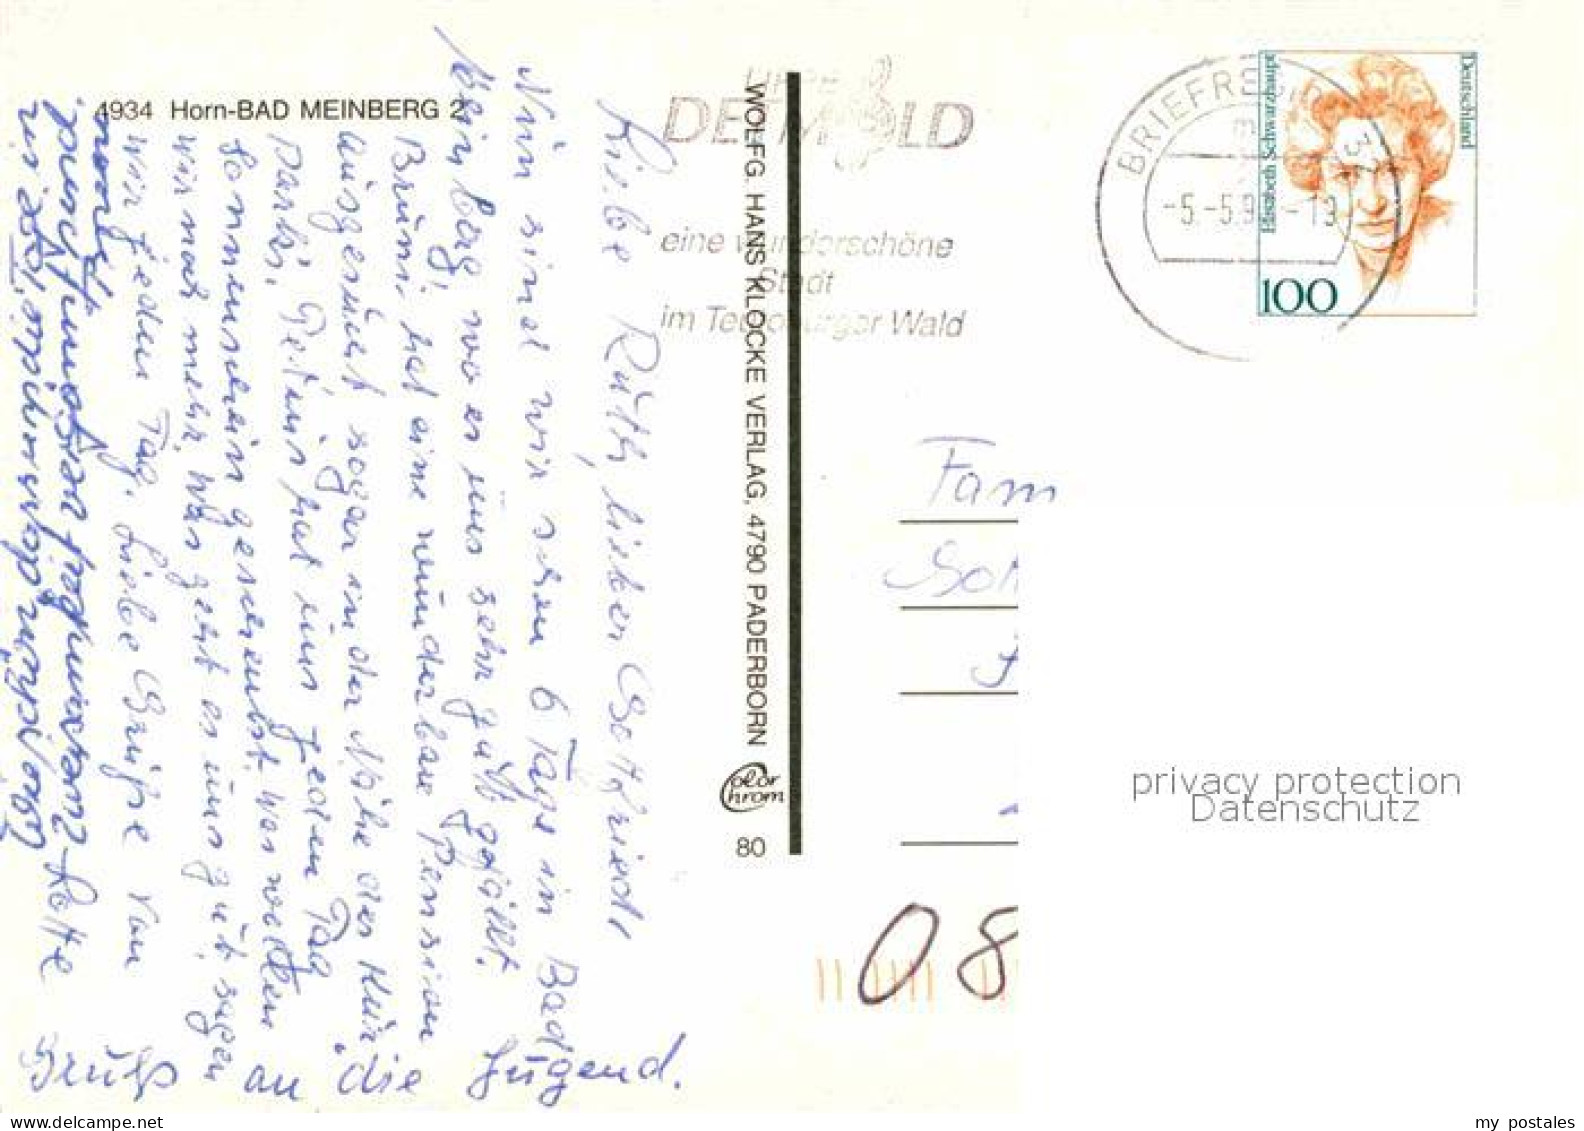 4934 Horn-BAD MEINBERG 2
Liebe Ruth, lieber Gottfried,
Nun sind wir schon 6 Tage in Bad
Meinberg, wo es uns sehr gut gefällt.
Brüni hat eine wunderbare Pension
ausgesucht sogar in der Nähe der Kur
Parks. Petrus hat uns jeden Tag
Sonnenschein geschenkt was wollen
wir noch mehr. Was geht es uns gut sagen
wir jeden Tag. Liebe Grüße von
Lotte
Gruß an die Jugend.
WOLFG. HANS KLOCKE VERLAG, 4790 PADERBORN
Color Chrom
80
LIPPE
DETMOLD
eine wunderschöne
Stadt
im Teutoburger Wald
BRIEFREGION 37
-5.-5.9 -19
Deutschland
Elisabeth Schwarzhaupt
100
Fam
08
privacy protection
Datenschutz
my postales